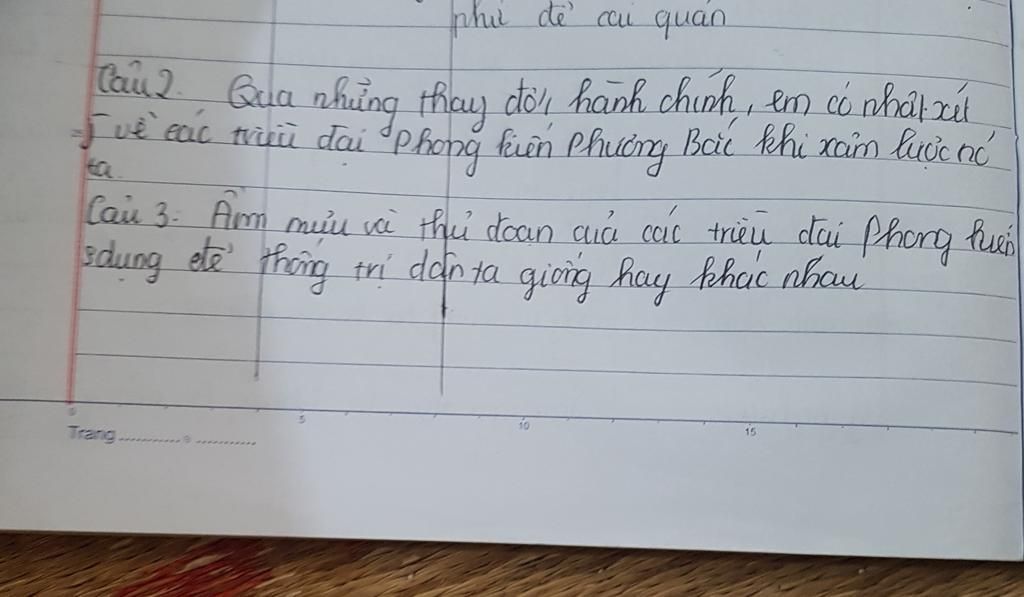 phủ để cai quản
Câu 2. Qua những thay đổi, hành chính, em có nhận xét
về các triều đại phong kiến Phương Bắc khi xâm lược nc
ta.
Câu 3: Âm mưu và thủ đoạn của các triều đại phong kiến
sdụng để thống trị dân ta giống hay khác nhau
0 5 10 15
Trang